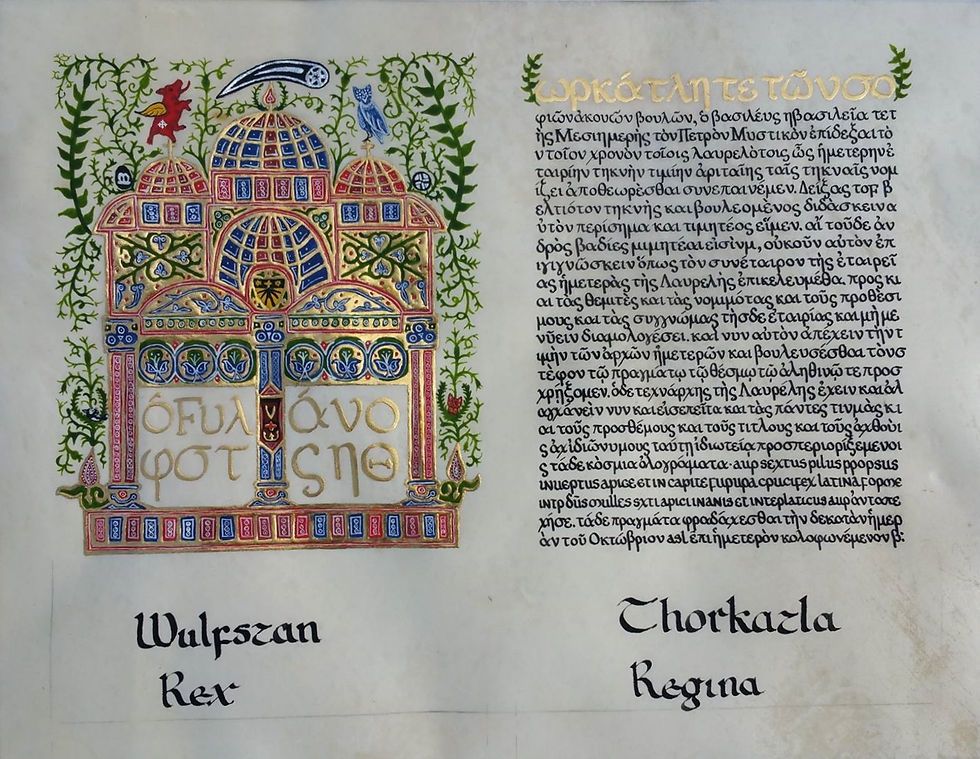 ὁϜυλ
φστ
άνο
ςηθ
ωρκάτλη τε τῶν σο
φιῶν ἀκουῶν βουλῶν, ὁ βασιλεύς ἠ βασιλεῖα τε τ
ῆς Μεσημερὴς τὸν Πετρὸν Μυστικὸν ἐπίδεξαι τὸ
ν τοῖον χρονὸν τοίοις λαυρελότοις ὥς ἡμετερην ἑ
ταιρίην τηκνὴν τιμίην ἀριταίης ταῖς τηκναῖς νομ
ίζει ἀποθεωρὲσθαι συνεπαινέμεν. Δείξας τοϝ β
ελτιότον τηκνῆς και βουλεομένος διδάσκειν α
ὐτὸν περίσημα και τιμητέος εἶμεν. αἵ τοῦδε ἀν
δρὸς βαδίες μιμητέαι εἰσὶνμι, οὐκοῦν αὐτὸν ἐπ
ιγιγνώσκειν ὅπως τὸν συνέταιρον τῆς ἑταιρεῖ
ας ἡμετερὰς τῆς Λαυρελῆς ἐπικελευμεθα. προς κι
αι τὰς θεμιτὲς και τὰς νομιμότας και τοῦς προθεσι
μους και τὰς συγγνώμας τῆσδε ἑταιρίας και μὴ με
νῦειν διαμολογέσει. καὶ νυν αὐτὸν ἀπέχειν τὴν τ
ιμὴν τῶν ἀρχῶν ἡμετερῶν και βουλευσέσθαι τὸυς
τέφον τῶ πραγμάτω τῶ θέσμω τῶ ἀληθινῶ τε προσ
χρῄζομεν. ὁδε τεχνάρχης τῆς Λαυρελης ἐχειν και ἀλ
αγχάνειν νυν και εἰσεπεῖτα και τὰς πάντες τινμὰς κι
αι τοῦς προσθέμους και τοῦς τιτλους και τοῦς ἀχθουὶ
ς ἀχιδιώνυμους ταύτῃ ἰδιωτεία προσπεριοριζέμενοι
ς τάδε κόσμια ὁλογράματα· aurp sextus pilus propsus
inueptus apice et in capite purpura crucifex latina forme
intp duos mulles sxti apici inanis et interplaticus aurp ἀντοπε
χήσε. τάδε πραγμάτα φραδάχεσθαι τὴν δεκατὰν ἡμερ
ὰν τοῦ Οκτώβριον asl ἐπι ἡμετερὸν κολοφωνέμενον β:
Wulfstan
Rex
Thorkatla
Regina